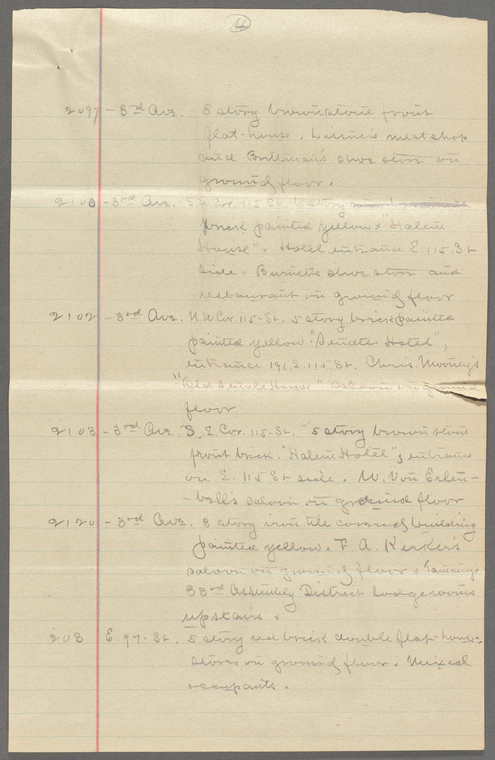 2097 - 3rd Ave. 5 story brownstone front
flat-house. meat shop
and Brillman's shoe store on
ground floor.
2100 - 3rd Ave. S.W. Cor. 115 St. story
brick painted yellow "Halem
House". Hotel entrance E. 115. St
side. Burnett's shoe store and
restaurant on ground floor
2102 - 3rd Ave. N.W. Cor. 115-St. 5 story brick painted
painted yellow "Senate Hotel",
entrance 191 E. 115 St. Chris. Mooney's
"Old House" saloon on ground
floor
2103 - 3rd Ave. S.E. Cor. 115-St. 5 story brown stone
front brick. "Halem Hotel"; entrance
on E. 115 St side. W. Von Eslen-
-ball's saloon on ground floor
2120 - 3rd Ave. 3 story iron tile covered building
painted yellow. F. A. Kerker's
saloon on ground floor.
33rd Assembly District lodge rooms
upstairs.
203 E. 97-St. 5 story red brick double flat-house.
stores on ground floor. Mixed
occupants.